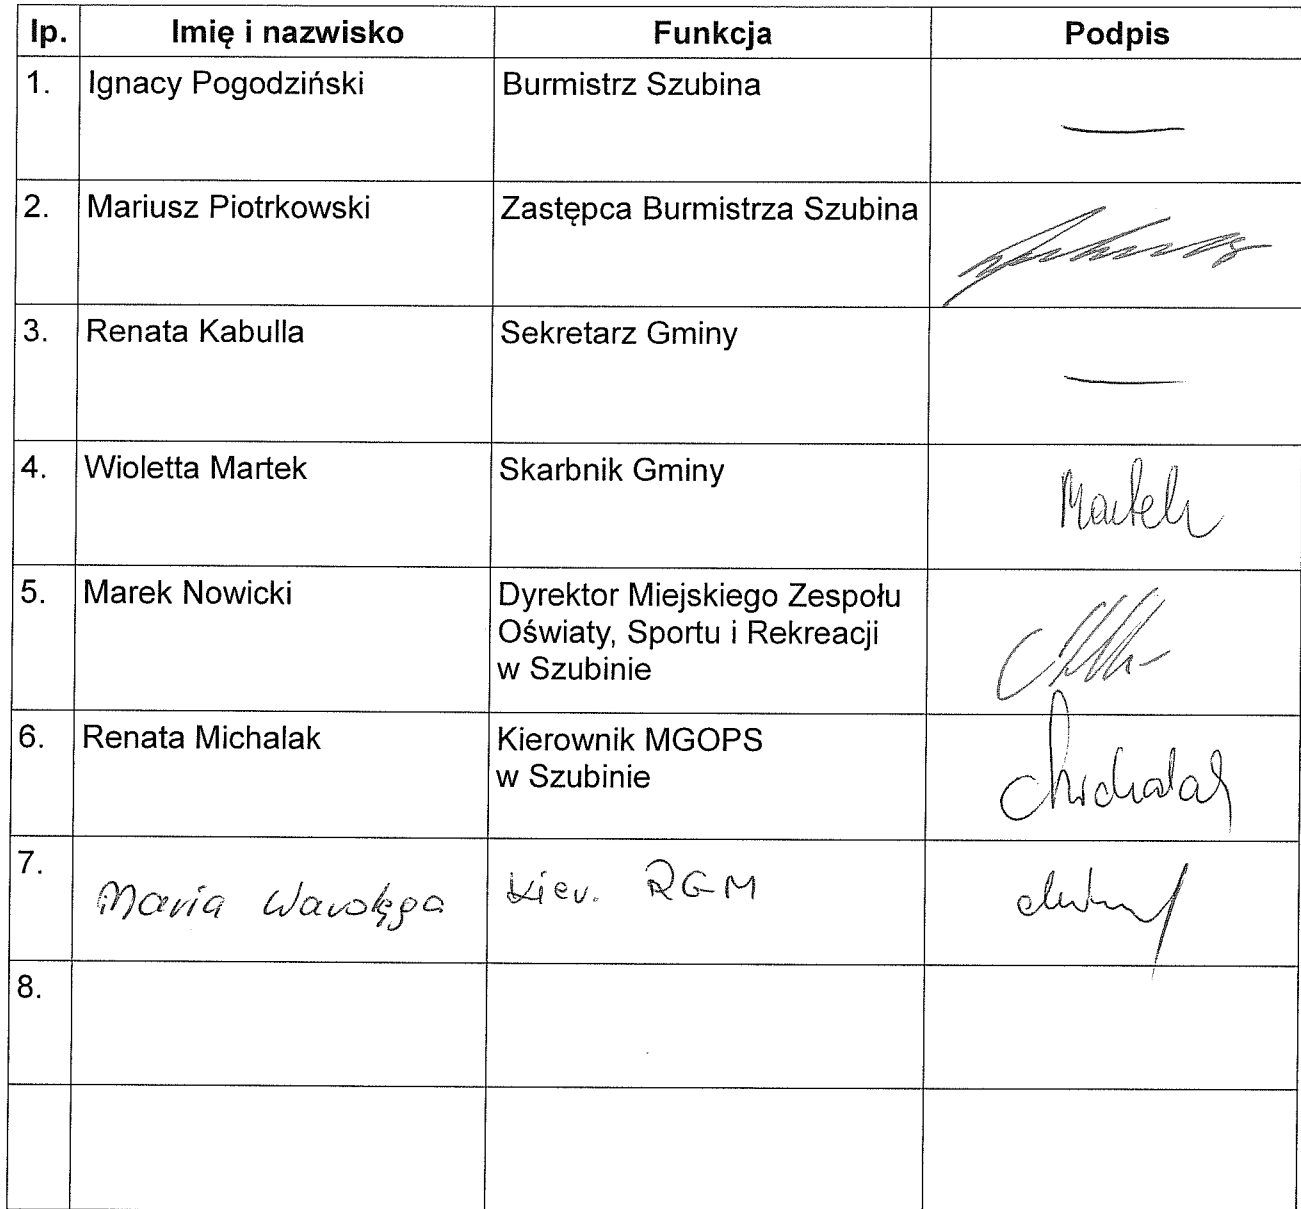 lp. Imię i nazwisko Funkcja Podpis
1. Ignacy Pogodziński Burmistrz Szubina
2. Mariusz Piotrkowski Zastępca Burmistrza Szubina
3. Renata Kabulla Sekretarz Gminy
4. Wioletta Martek Skarbnik Gminy Martek
5. Marek Nowicki Dyrektor Miejskiego Zespołu
Oświaty, Sportu i Rekreacji
w Szubinie
6. Renata Michalak Kierownik MGOPS
w Szubinie Michalak
7. Maria Kier. RGM
8.